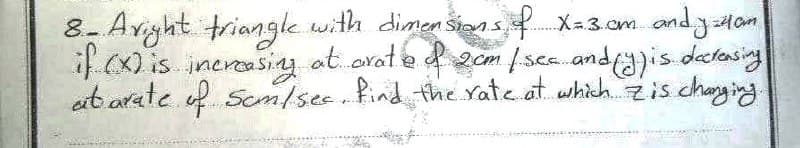 8- A right triangle with dimensions of X=3cm and y=4cm
if (x) is increasing at arate of 2cm/sec and (y) is decreasing
at arate of 5cm/sec. find the rate at which Z is changing.